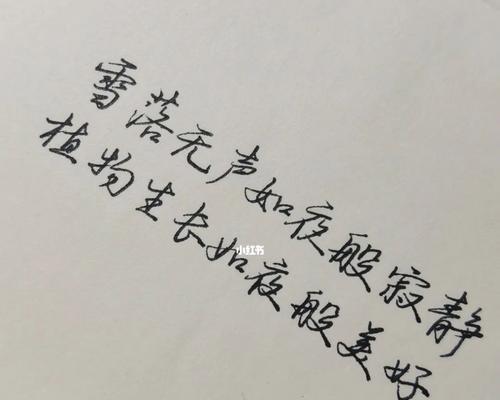 雪落无声如夜般寂静
植物生长如夜般美好
小红书